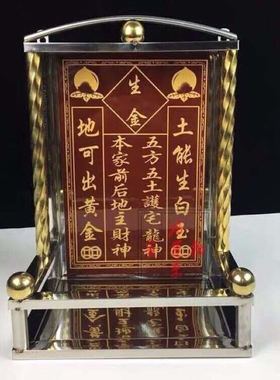 生金
土能生白玉
五方五土護宅龍神
本家前后地主財神
地可出黃金